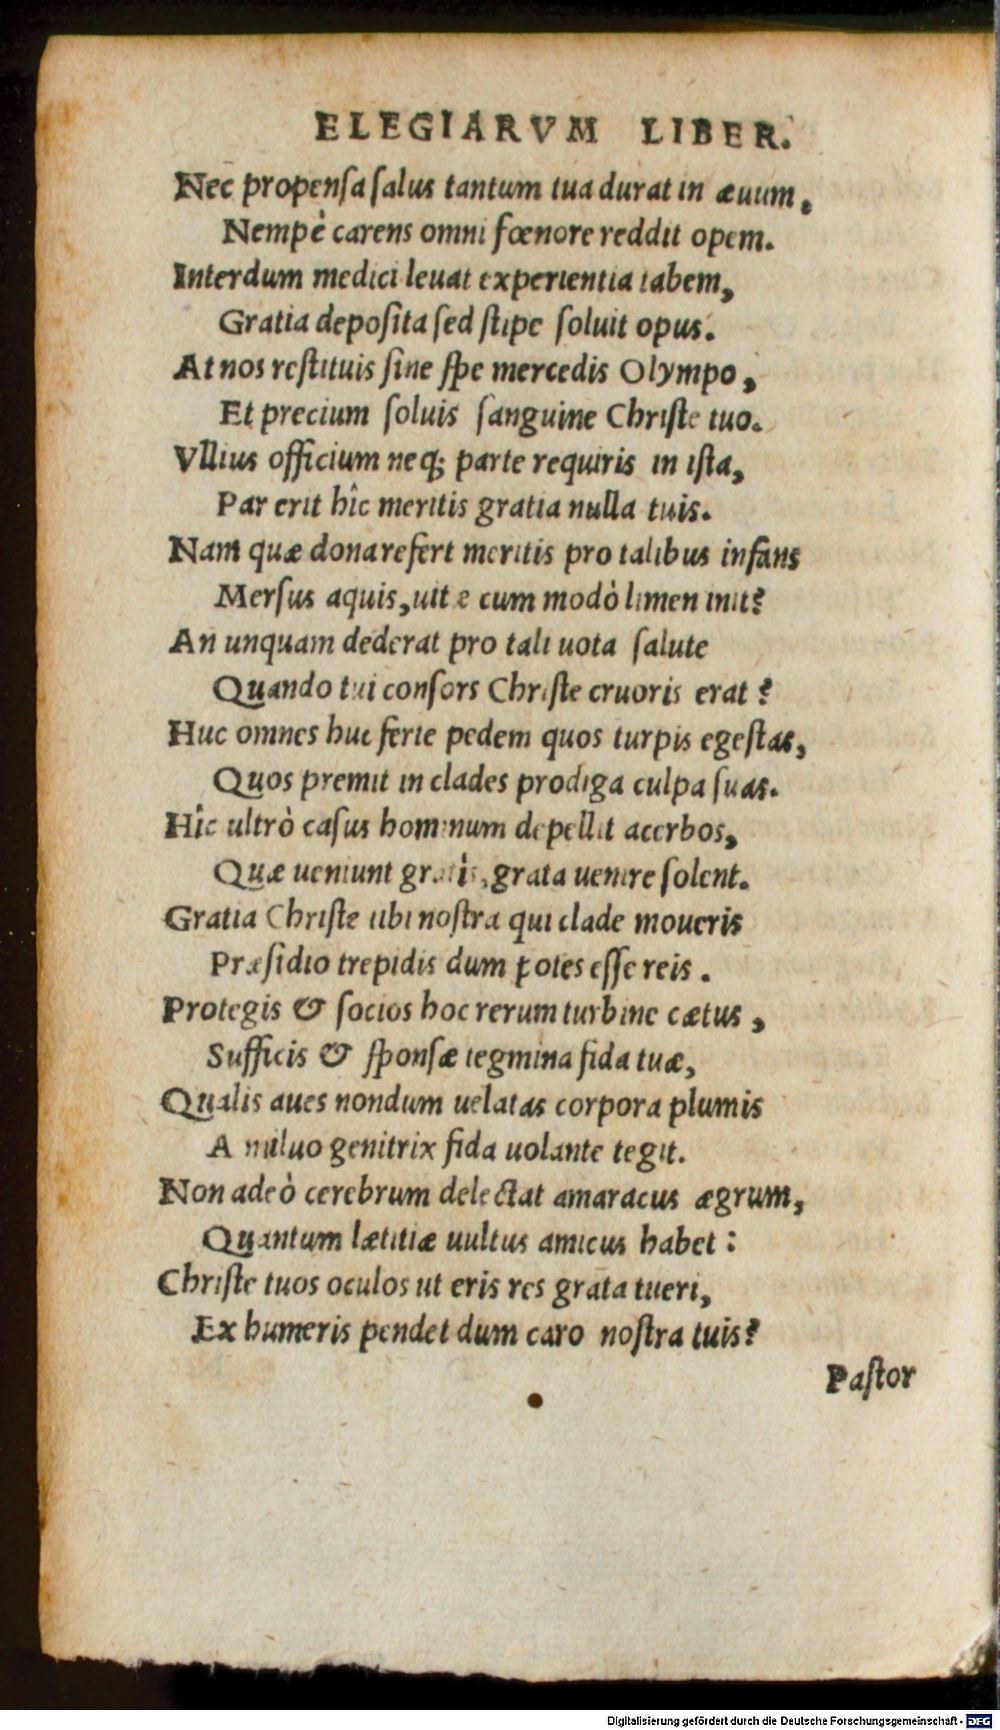 ELEGIARVM LIBER.
Nec propenſa ſalus tantum tua durat in æuum,
Nempè carens omni fœnore reddit opem.
Interdum medici leuat experientia tabem,
Gratia depoſita ſed ſtipe ſoluit opus.
At nos reſtituis ſine ſpe mercedis Olympo,
Et precium ſoluis ſanguine Chriſte tuo.
Vllius officium neq; parte requiris in iſta,
Par erit hîc meritis gratia nulla tuis.
Nam quæ dona refert meritis pro talibus infans
Merſus aquis, uitæ cum modò limen init?
An unquam dederat pro tali uota ſalute
Quando tui conſors Chriſte cruoris erat?
Huc omnes huc ferte pedem quos turpis egeſtas,
Quos premit in clades prodiga culpa ſuas.
Hîc ultrò caſus hominum depellit acerbos,
Quæ ueniunt gratis, grata uenire ſolent.
Gratia Chriſte tibi noſtra qui clade moueris
Præſidio trepidis dum potes eſſe reis.
Protegis & ſocios hoc rerum turbine cætus,
Sufficis & ſponſæ tegmina fida tuæ,
Qualis aues nondum uelatas corpora plumis
A miluo genitrix fida uolante tegit.
Non adeò cerebrum delectat amaracus ægrum,
Quantum lætitiæ uultus amicus habet:
Chriſte tuos oculos ut eris res grata tueri,
Ex humeris pendet dum caro noſtra tuis?
Paſtor
Digitalisierung gefördert durch die Deutsche Forschungsgemeinschaft - DFG